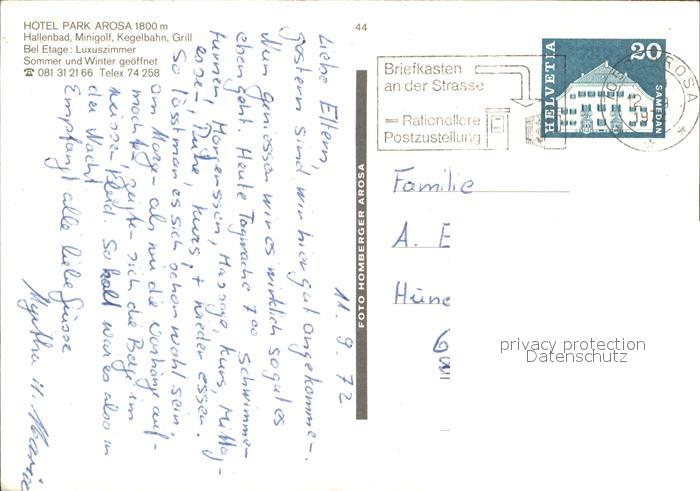 HOTEL PARK AROSA 1800 m
Hallenbad, Minigolf, Kegelbahn, Grill
Bel Etage: Luxuszimmer
Sommer und Winter geöffnet
☎ 081 31 21 66 Telex 74 258
44
FOTO HOMBERGER AROSA
11. 9. 72
Liebe Eltern,
gestern sind wir hier gut angekommen.
Nun geniessen wir es wirklich so gut es
eben geht. Heute Tagwache 7 00 Schwimmen
turnen, Morgenessen, Massage, Kurs, Mittag-
essen, Ruhe, Kurs, + wieder essen.
So lässt man es sich schon wohl sein.
Am Morgen als wir die Vorhänge auf-
machten, zeigten sich die Berge im
weissen Kleid. So kalt war es also in
der Nacht.
Empfangt alle liebe Grüsse
Myrtha u.
Briefkasten
an der Strasse
= Rationellere
Postzustellung
HELVETIA
20
SAMEDAN
AROSA
Familie
A. E
Hüne
privacy protection
Datenschutz